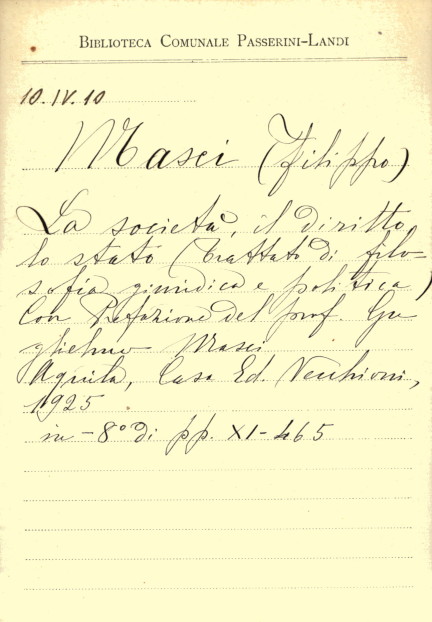 BIBLIOTECA COMUNALE PASSERINI-LANDI
10.IV.10
Masci (Filippo)
La società, il diritto
lo stato (Trattato di filo-
sofia giuridica e politica)
Con Prefazione del prof. Gu
glielmo Masci
Aquila, Casa Ed. Vecchioni,
1925
in-8° di pp. XI-465